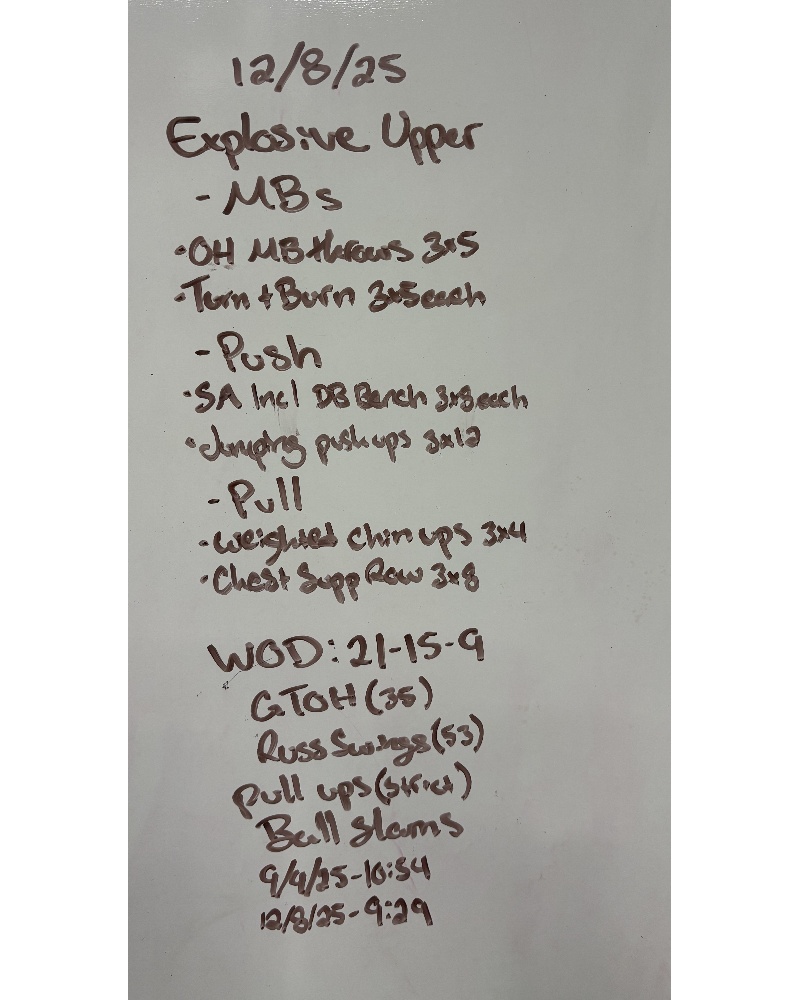 12/8/25
Explosive Upper
- MBs
• OH MB throws 3x5
• Turn + Burn 3x5 each
- Push
• SA Incl DB Bench 3x8 each
• Jumping push ups 3x12
- Pull
• Weighted chin ups 3x4
• Chest Supp Row 3x8
WOD: 21-15-9
GTOH (35)
Russ Swings (53)
Pull ups (strict)
Ball Slams
9/9/25 - 10:54
12/8/25 - 9:29